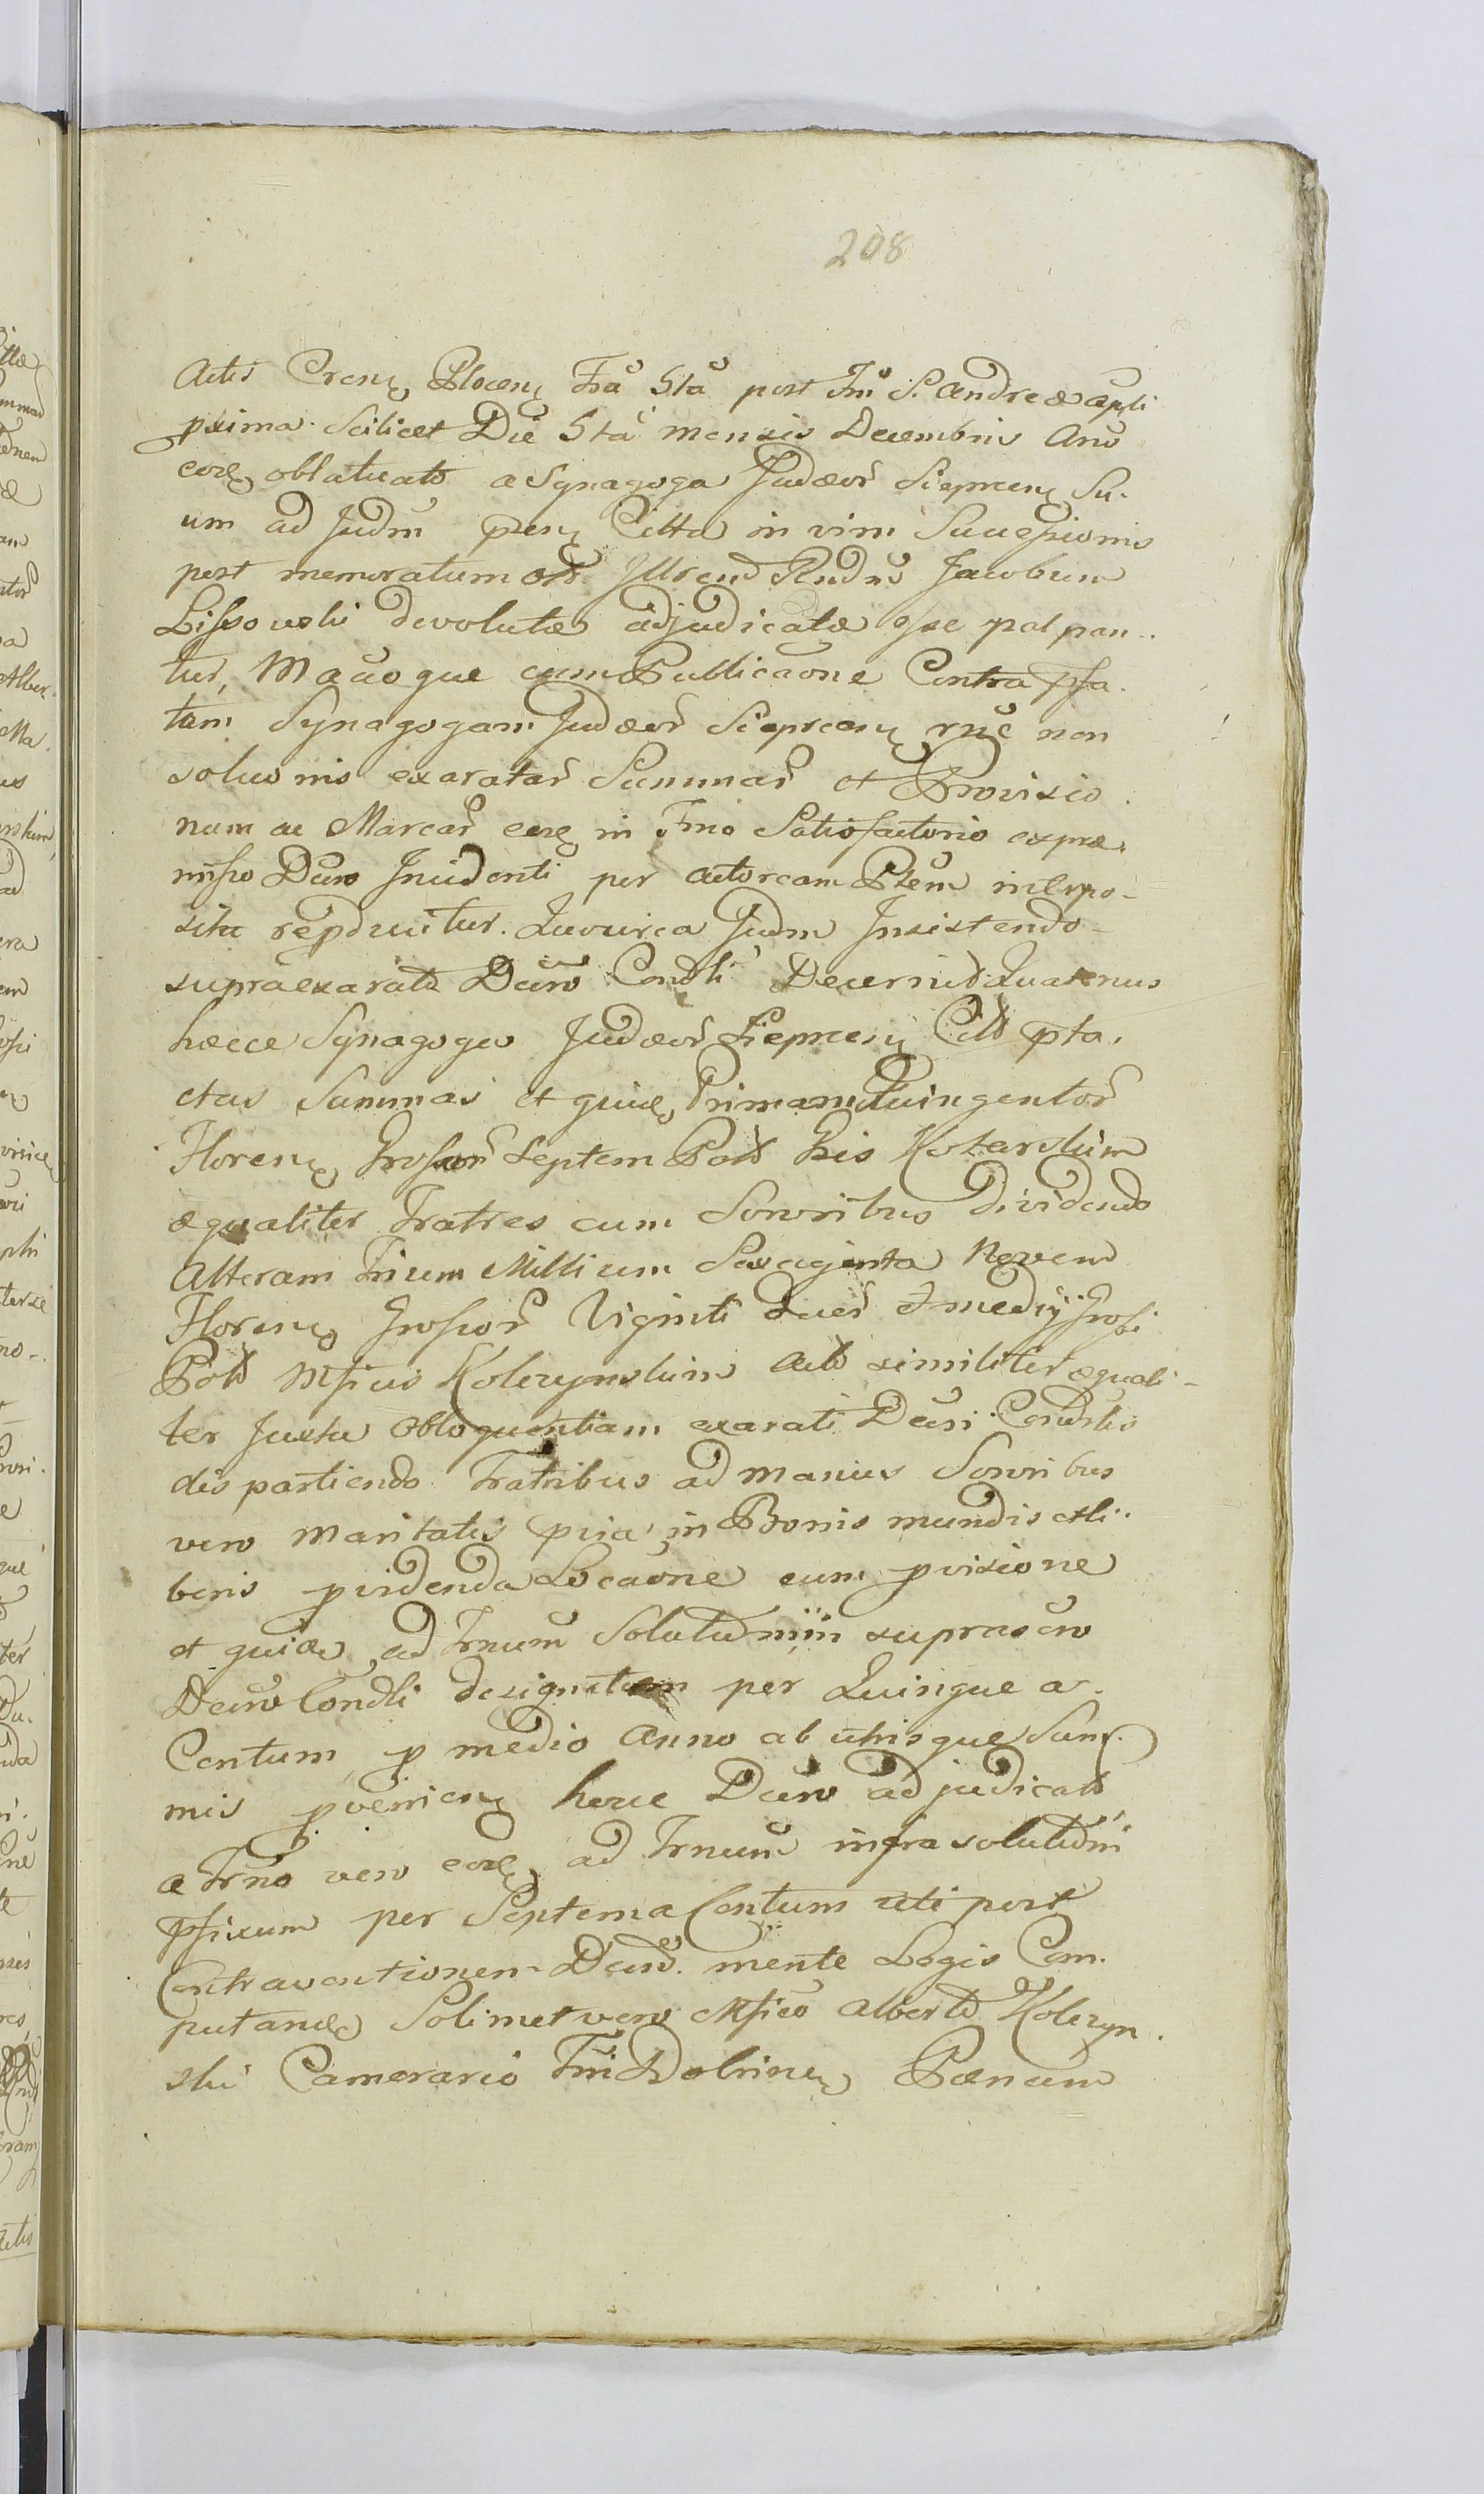 208
Actis Crens Plocens Fra 5ta post Fm S. Andreæ Apli
pxima. Scilicet Die 5ta mensis Decembris Anō
eorz oblaticato a Synagoga Judæor Sieprcens Su.
um ad Judm præns Citta in vim Successionis
post memoratum Illrend Rndm Jacobum
Lissowski devolutæ adjudicatæ esse palpan..
tur, Macioque cum Publicaone Contra pfa.
tam Synagogam Judæor Sieprcens non
solutionis exaratar Summar et Provisio.
num ac Marcar eorz in Fmo Satisfactorio expræ.
misso Dcto Incidenti per Actoream Ptem interpo-
situ repducitur. Quocirca Judm Insistendo
supraexarato Dcto Condli Decernit Quatenus
hæcce Synagoga Judæor Sieprcens Citt pta.
ctas Summas et quidz Primam Quingentor
Florens Grossor Septem Polt Gsis Kotarskim
æqualiter Fratres cum Sororibus dividendo
Alteram Trium Millium Sexaginta Novem
Florens Grossor Viginti Duor et medij Grossi
Polt Mfcus Kolczynskim Actt similiter æquali-
ter Juxta Obloquentiam exarati Dcti Condlis
dispartiendo Fratribus ad manus Sororibus
vero Maritatis pvia in Bonis mundis et li..
beris pvidenda Locaone cum pvisione
et quidz ad Trnum Solutionis suprascto
Dcto Condli designatum per Quinque a.
Centum p medio Anno ab utrisque Sum.
mis pveniens hocce Dcto adjudicato
a Trno vero eorz ad Trnum infra solutionis
pfixum per Septem a Centum uti post
Contraventionem Dctis mente Legis Com.
putandz Solimet vero Mfico Alberto Kolczyn.
ski Camerario Trri Dobrinens Pænam